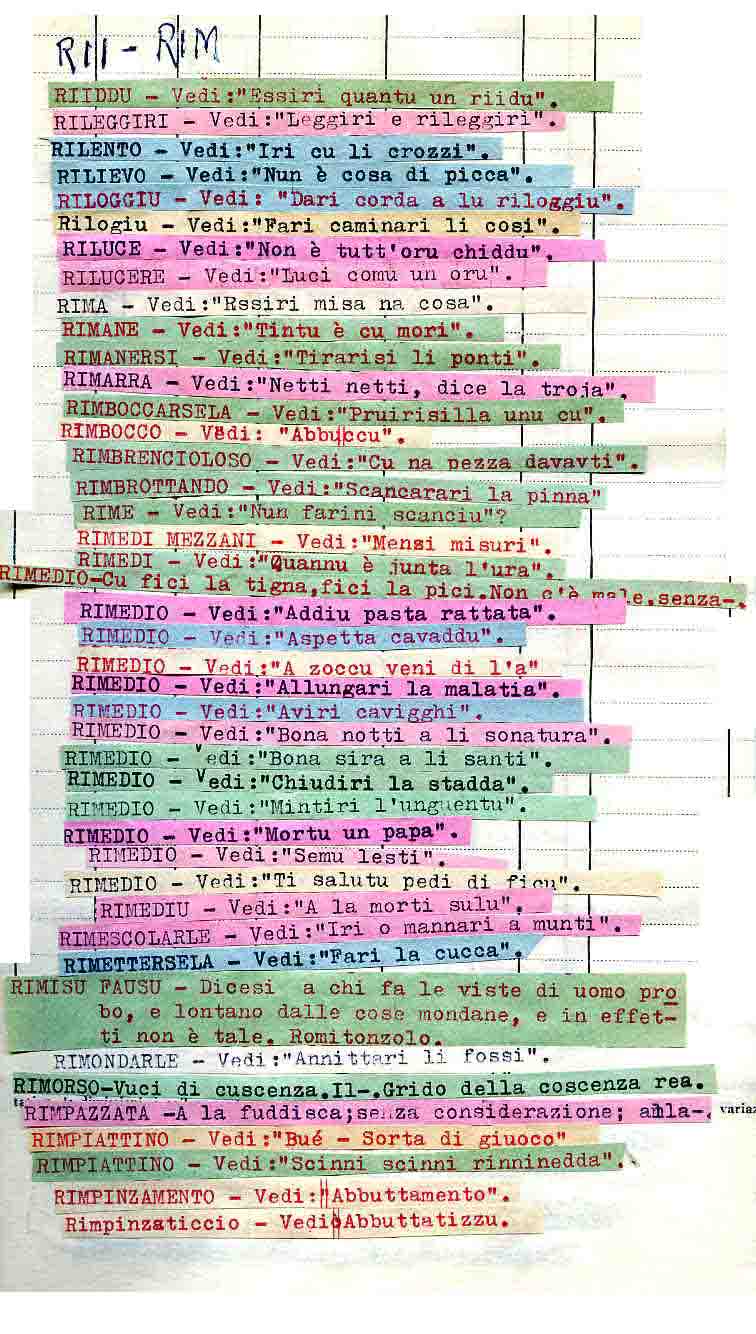 RII - RIM
RIIDDU - Vedi:"Essiri quantu un riidu".
RILEGGIRI - Vedi:"Leggiri e rileggiri".
RILENTO - Vedi:"Iri cu li crozzi".
RILIEVO - Vedi:"Nun è cosa di picca".
RILOGGIU - Vedi: "Dari corda a lu riloggiu".
Rilogiu - Vedi:"Fari caminari li cosi".
RILUCE - Vedi:"Non è tutt'oru chiddu".
RILUCERE - Vedi:"Luci comu un oru".
RIMA - Vedi:"Essiri misa na cosa".
RIMANE - Vedi:"Tintu è cu mori".
RIMANERSI - Vedi:"Tirarisi li ponti".
RIMARRA - Vedi:"Netti netti, dice la troja".
RIMBOCCARSELA - Vedi:"Pruirisilla unu cu".
RIMBOCCO - Vedi: "Abbuccu".
RIMBRENCIOLOSO - Vedi:"Cu na pezza davavti".
RIMBROTTANDO - Vedi:"Scancarari la pinna"
RIME - Vedi:"Nun farini scanciu"?
RIMEDI MEZZANI - Vedi:"Mensi misuri".
RIMEDI - Vedi:"Quannu è junta l'ura".
RIMEDIO-Cu fici la tigna,fici la pici.Non c'è male.senza-.
RIMEDIO - Vedi:"Addiu pasta rattata".
RIMEDIO - Vedi:"Aspetta cavaddu".
RIMEDIO - Vedi:"A zoccu veni di l'a"
RIMEDIO - Vedi:"Allungari la malatia".
RIMEDIO - Vedi:"Aviri cavigghi".
RIMEDIO - Vedi:"Bona notti a li sonatura".
RIMEDIO - Vedi:"Bona sira a li santi".
RIMEDIO - Vedi:"Chiudiri la stadda".
RIMEDIO - Vedi:"Mintiri l'unguentu".
RIMEDIO - Vedi:"Mortu un papa".
RIMEDIO - Vedi:"Semu lesti".
RIMEDIO - Vedi:"Ti salutu pedi di ficu".
RIMEDIU - Vedi:"A la morti sulu".
RIMESCOLARLE - Vedi:"Iri o mannari a munti".
RIMETTERSELA - Vedi:"Fari la cucca".
RIMISU FAUSU - Dicesi a chi fa le viste di uomo pro
bo, e lontano dalle cose mondane, e in effet-
ti non è tale. Romitonzolo.
RIMONDARLE - Vedi:"Annittari li fossi".
RIMORSO-Vuci di cuscenza.Il-.Grido della coscenza rea.
RIMPAZZATA -A la fuddisca;senza considerazione; alla-. varia
RIMPIATTINO - Vedi:"Bué - Sorta di giuoco"
RIMPIATTINO - Vedi:"Scinni scinni rinninedda".
RIMPINZAMENTO - Vedi:"Abbuttamento".
Rimpinzaticcio - Vedi Abbuttatizzu.